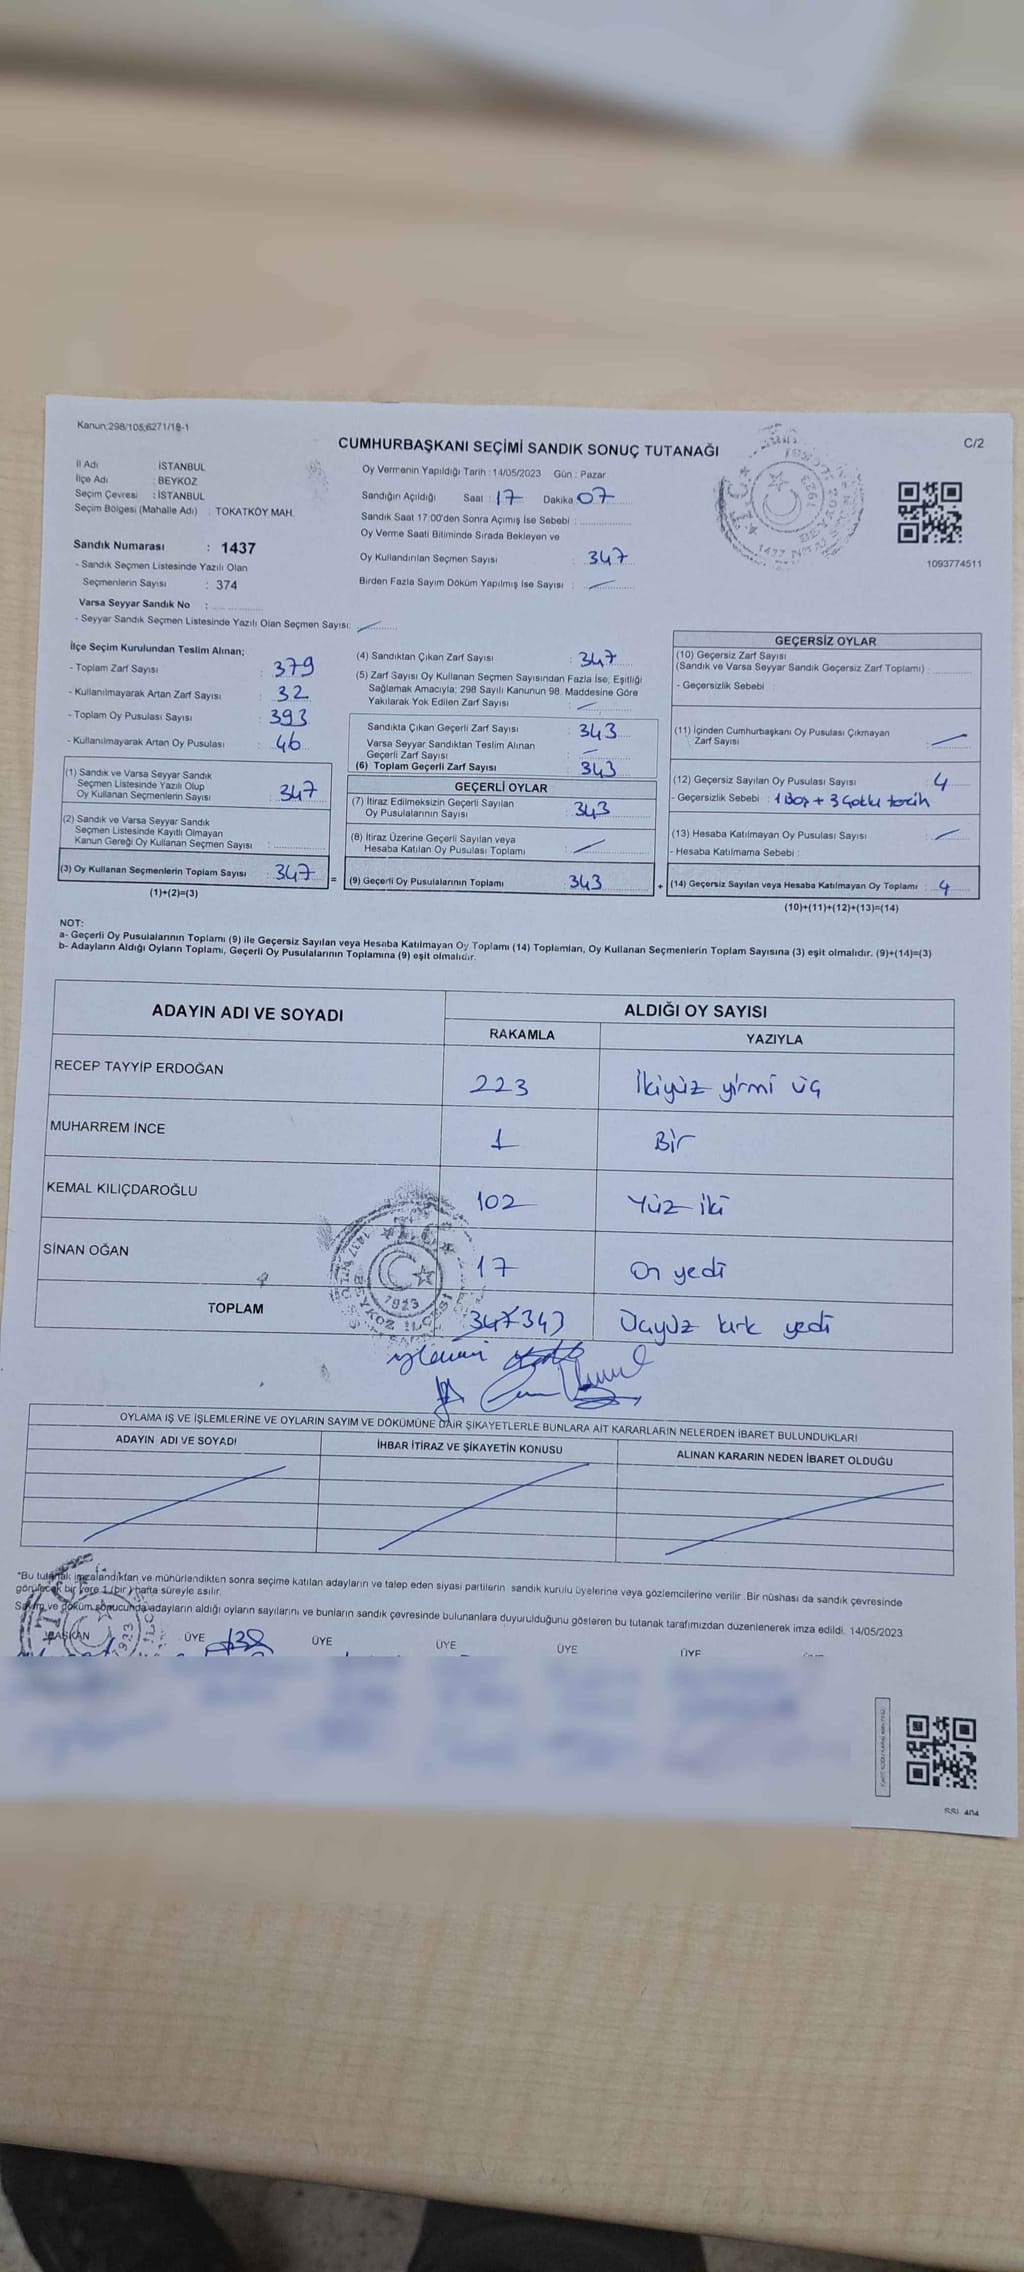 Kanun:298/105;6271/18-1
C/2
CUMHURBAŞKANI SEÇİMİ SANDIK SONUÇ TUTANAĞI
İl Adı : İSTANBUL
İlçe Adı : BEYKOZ
Seçim Çevresi : İSTANBUL
Seçim Bölgesi (Mahalle Adı) : TOKATKÖY MAH.
Sandık Numarası : 1437
- Sandık Seçmen Listesinde Yazılı Olan
Seçmenlerin Sayısı : 374
Varsa Seyyar Sandık No :
- Seyyar Sandık Seçmen Listesinde Yazılı Olan Seçmen Sayısı:
Oy Vermenin Yapıldığı Tarih : 14/05/2023 Gün : Pazar
Sandığın Açıldığı Saat : 17 Dakika 07
Sandık Saat 17:00'den Sonra Açımış İse Sebebi :
Oy Verme Saati Bitiminde Sırada Bekleyen ve
Oy Kullandırılan Seçmen Sayısı : 347
Birden Fazla Sayım Döküm Yapılmış İse Sayısı :
1093774511
İlçe Seçim Kurulundan Teslim Alınan;
- Toplam Zarf Sayısı : 379
- Kullanılmayarak Artan Zarf Sayısı : 32
- Toplam Oy Pusulası Sayısı : 393
- Kullanılmayarak Artan Oy Pusulası : 46
(1) Sandık ve Varsa Seyyar Sandık
Seçmen Listesinde Yazılı Olup
Oy Kullanan Seçmenlerin Sayısı : 347
(2) Sandık ve Varsa Seyyar Sandık
Seçmen Listesinde Kayıtlı Olmayan
Kanun Gereği Oy Kullanan Seçmen Sayısı :
(3) Oy Kullanan Seçmenlerin Toplam Sayısı : 347
(1)+(2)=(3)
(4) Sandıktan Çıkan Zarf Sayısı : 347
(5) Zarf Sayısı Oy Kullanan Seçmen Sayısından Fazla İse, Eşitliği
Sağlamak Amacıyla; 298 Sayılı Kanunun 98. Maddesine Göre
Yakılarak Yok Edilen Zarf Sayısı :
Sandıkta Çıkan Geçerli Zarf Sayısı : 343
Varsa Seyyar Sandıktan Teslim Alınan
Geçerli Zarf Sayısı :
(6) Toplam Geçerli Zarf Sayısı : 343
GEÇERLİ OYLAR
(7) İtiraz Edilmeksizin Geçerli Sayılan
Oy Pusulalarının Sayısı : 343
(8) İtiraz Üzerine Geçerli Sayılan veya
Hesaba Katılan Oy Pusulası Toplamı :
= (9) Geçerli Oy Pusulalarının Toplamı : 343
GEÇERSİZ OYLAR
(10) Geçersiz Zarf Sayısı
(Sandık ve Varsa Seyyar Sandık Geçersiz Zarf Toplamı) :
- Geçersizlik Sebebi :
(11) İçinden Cumhurbaşkanı Oy Pusulası Çıkmayan
Zarf Sayısı
(12) Geçersiz Sayılan Oy Pusulası Sayısı : 4
- Geçersizlik Sebebi : 1 Boş + 3 Çoklu tercih
(13) Hesaba Katılmayan Oy Pusulası Sayısı :
- Hesaba Katılmama Sebebi :
+ (14) Geçersiz Sayılan veya Hesaba Katılmayan Oy Toplamı : 4
(10)+(11)+(12)+(13)=(14)
NOT:
a- Geçerli Oy Pusulalarının Toplamı (9) ile Geçersiz Sayılan veya Hesaba Katılmayan Oy Toplamı (14) Toplamları, Oy Kullanan Seçmenlerin Toplam Sayısına (3) eşit olmalıdır. (9)+(14)=(3)
b- Adayların Aldığı Oyların Toplamı, Geçerli Oy Pusulalarının Toplamına (9) eşit olmalıdır.
ADAYIN ADI VE SOYADI
ALDIĞI OY SAYISI
RAKAMLA
YAZIYLA
RECEP TAYYİP ERDOĞAN 223 İkiyüz yirmi üç
MUHARREM İNCE 1 Bir
KEMAL KILIÇDAROĞLU 102 Yüz iki
SİNAN OĞAN 17 On yedi
TOPLAM 347 343 Üçyüz kırk yedi
T.C.
BEYKOZ İLÇESİ
1923
OYLAMA İŞ VE İŞLEMLERİNE VE OYLARIN SAYIM VE DÖKÜMÜNE DAİR ŞİKAYETLERLE BUNLARA AİT KARARLARIN NELERDEN İBARET BULUNDUKLARI
ADAYIN ADI VE SOYADI
İHBAR İTİRAZ VE ŞİKAYETİN KONUSU
ALINAN KARARIN NEDEN İBARET OLDUĞU
*Bu tutanak imzalandıktan ve mühürlendikten sonra seçime katılan adayların ve talep eden siyasi partilerin sandık kurulu üyelerine veya gözlemcilerine verilir. Bir nüshası da sandık çevresinde
görülecek bir yere 1 (bir) hafta süreyle asılır.
Sayım ve döküm sonucunda adayların aldığı oyların sayılarını ve bunların sandık çevresinde bulunanlara duyurulduğunu gösteren bu tutanak tarafımızdan düzenlenerek imza edildi. 14/05/2023
BAŞKAN ÜYE ÜYE ÜYE ÜYE ÜYE